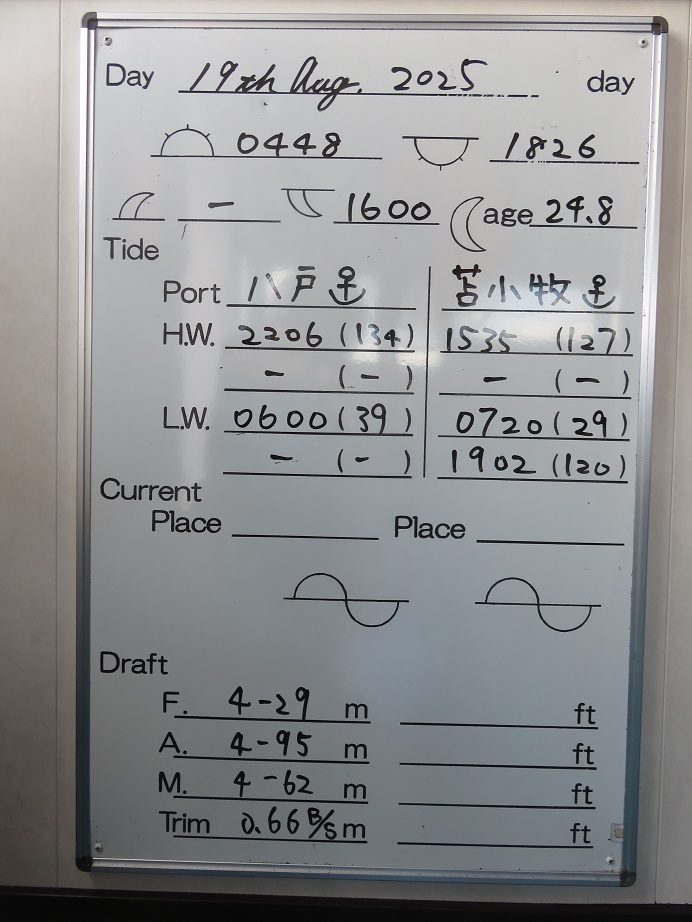 Day 19th Aug. 2025 day
0448 1826
- 1600 age 24.8
Tide
Port 八戸 苫小牧
H.W. 2206 (134) 1535 (127)
- (-) - (-)
L.W. 0600 (39) 0720 (29)
- (-) 1902 (120)
Current
Place Place
Draft
F. 4-29 m ft
A. 4-95 m ft
M. 4-62 m ft
Trim 0.66 B/S m ft